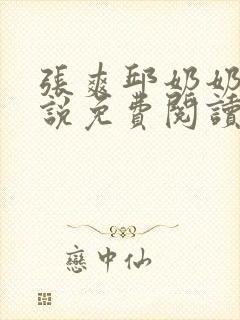 張爽邱奶奶
說免費閱讀
戀中仙